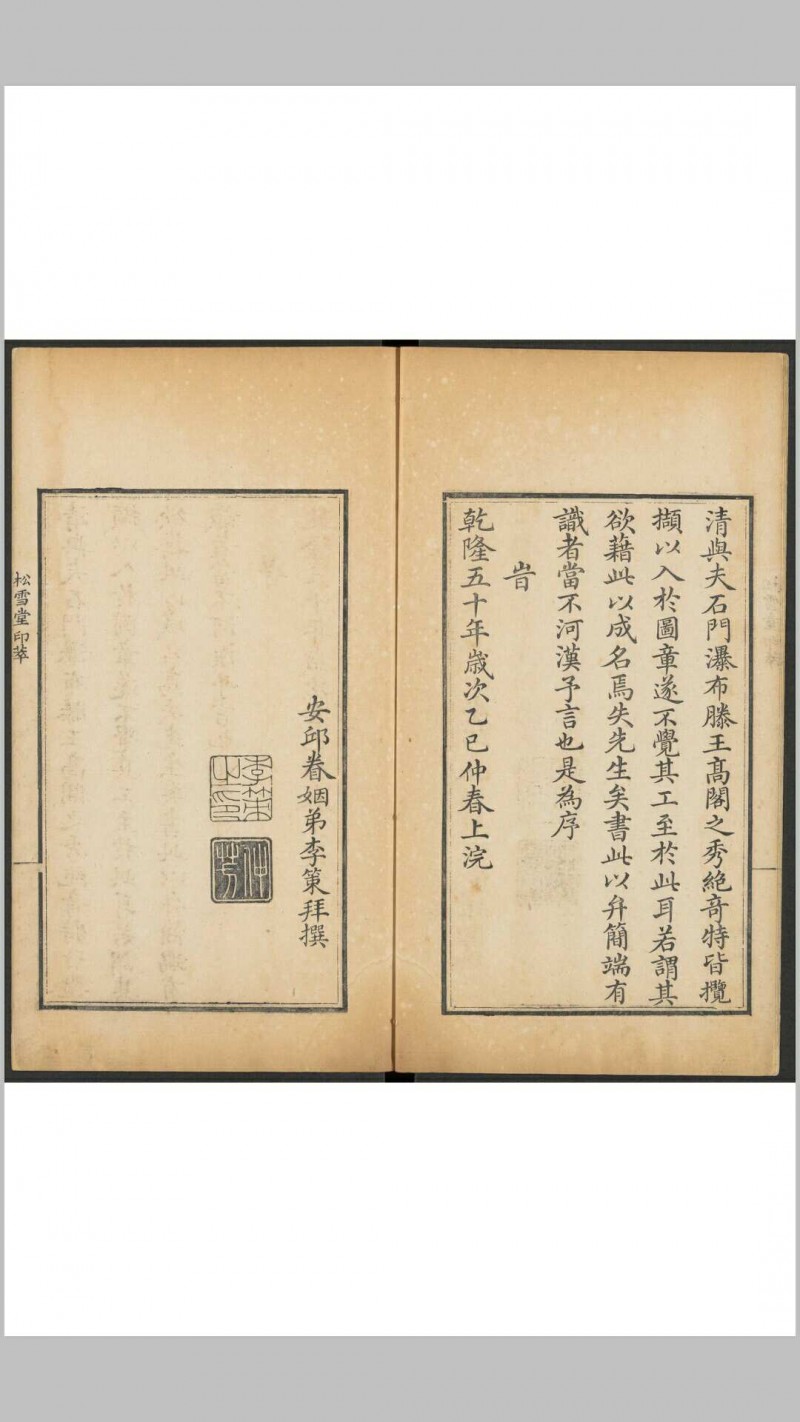 清與夫石門瀑布滕王髙閣之秀絶竒特皆攬
擷以入於圖章遂不覺其工至於此耳若謂其
欲藉此以成名焉失先生矣書此以弁簡端有
識者當不河漢予言也是為序
旹
乾隆五十年歲次乙巳仲春上浣
安邱眷姻弟李策拜撰
李策之印
仲芳
松雪堂印萃